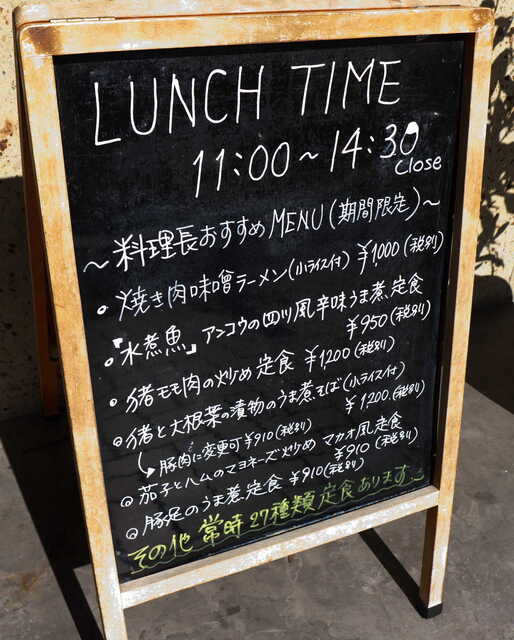 LUNCH TIME
11:00～14:30
close
～料理長おすすめMENU(期間限定)～
。焼き肉味噌ラーメン(小ライス付) ¥1,000(税別)
。「水煮魚」アンコウの四川風辛味うま煮定食
¥950(税別)
。猪モモ肉の炒め定食 ¥1,200(税別)
◎猪と大根葉の漬物のうま煮そば(小ライス付)
¥1,200.(税別)
豚肉に変更可¥910(税別)
◎茄子とハムのマヨネーズ炒め マカオ風定食
¥910(税別)
◎豚足のうま煮定食 ¥910(税別)
その他 常時27種類定食あります